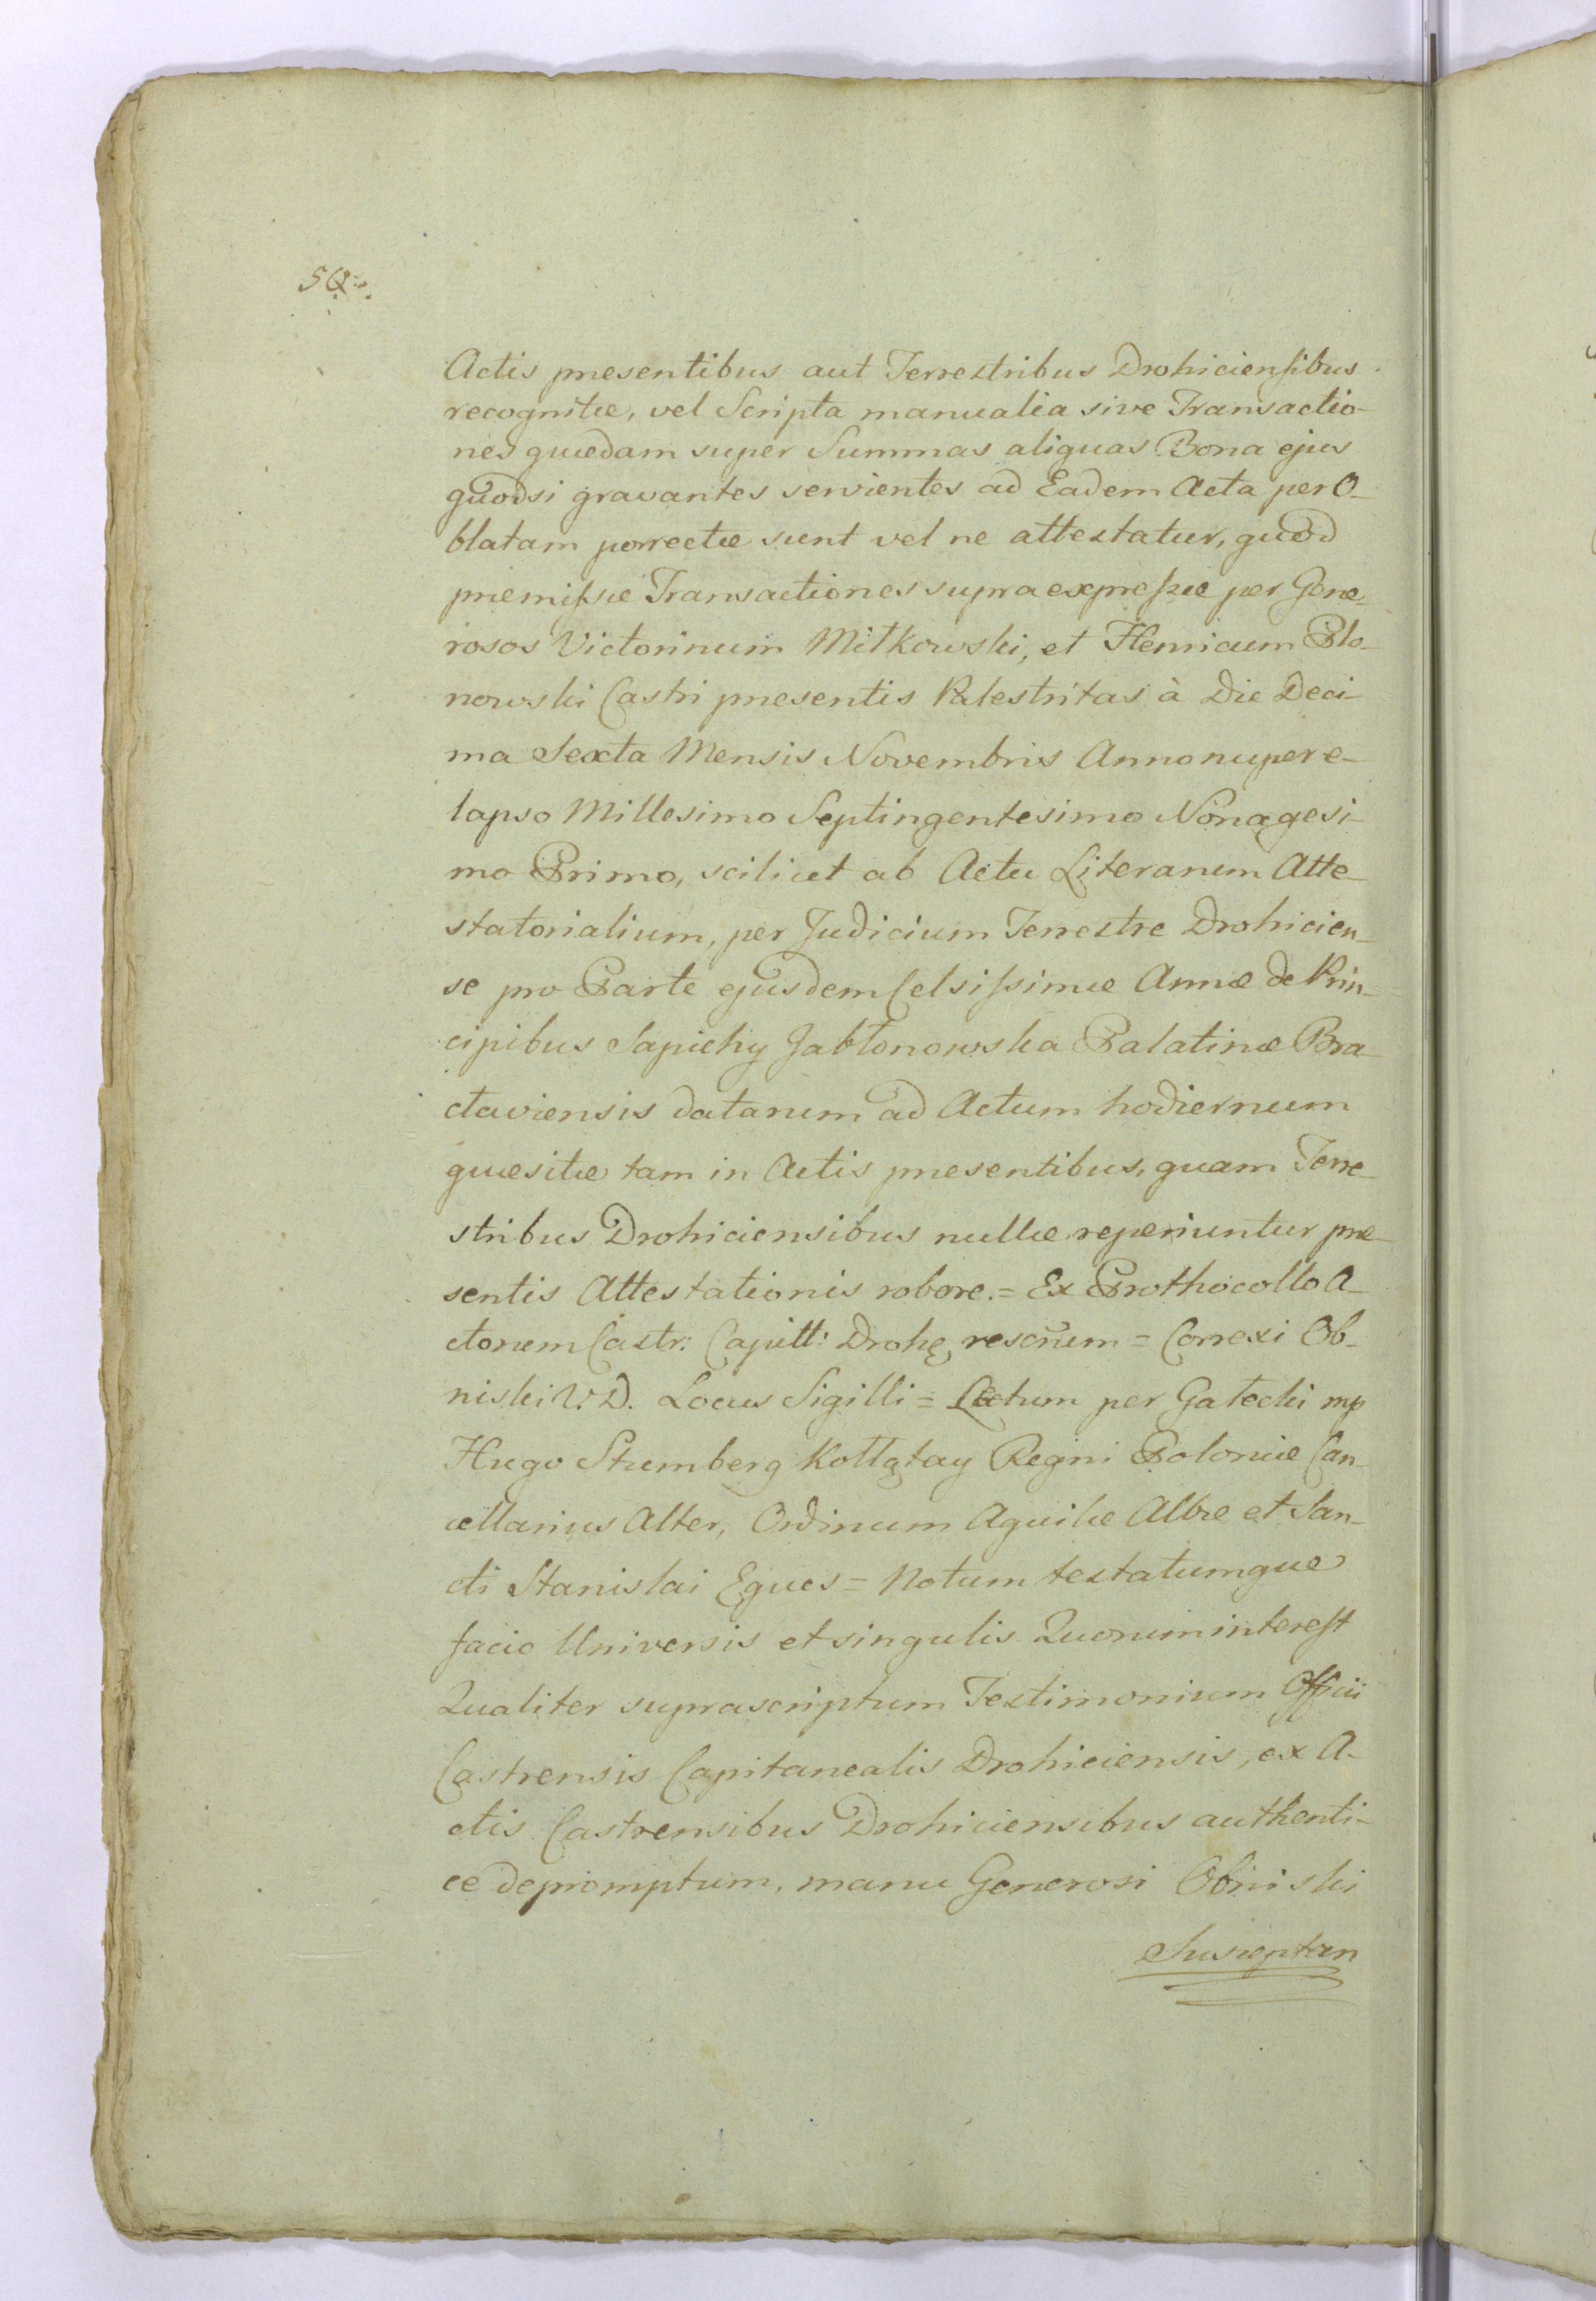 Actis præsentibus aut Terrestribus Drohiciensibus
recognitæ, vel Scripta manualia sive Transactio-
nes quædam super Summas aliquas Bona ejus
quodsi gravantes servientes ad Eadem Acta per O-
blatam porrectæ sunt vel ne attestatur, quod
præmissæ Transactiones supra expressæ per Gene-
rosos Victorinum Mitkowski, et Henricum Blo-
nowski Castri præsentis Palestritas à Die Deci-
ma Sexta Mensis Novembris Anno nuper e-
lapso Millesimo Septingentesimo Nonagesi-
mo Primo, scilicet ab Actu Literarum Atte-
statorialium, per Judicium Terrestre Drohicien-
se pro Parte ejusdem Celsissimæ Annæ de Prin-
cipibus Sapiehy Jabłonowska Palatinæ Bra-
claviensis datarum ad Actum hodiernum
quæsitæ tam in Actis præsentibus, quam Terre-
stribus Drohiciensibus nullæ reperiuntur præ-
sentis Attestationis robore. = Ex Prothocollo A-
ctorum Castr: Capitt: Drohę rescrium = Correxi Ob-
niski V. D. Locus Sigilli = Lectum per Gałecki mp
Hugo Stumberg Kołłątay Regni Poloniæ Can-
cellarius Alter, Ordinum Aquilæ Albæ et San-
cti Stanislai Eques = Notum testatumque
facio Universis et singulis Quorum interest
Qualiter suprascriptum Testimonium Officii
Castrensis Capitanealis Drohiciensis, ex A-
ctis Castrensibus Drohiciensibus authenti-
ce depromptum, manu Generosi Obniski
Susceptan